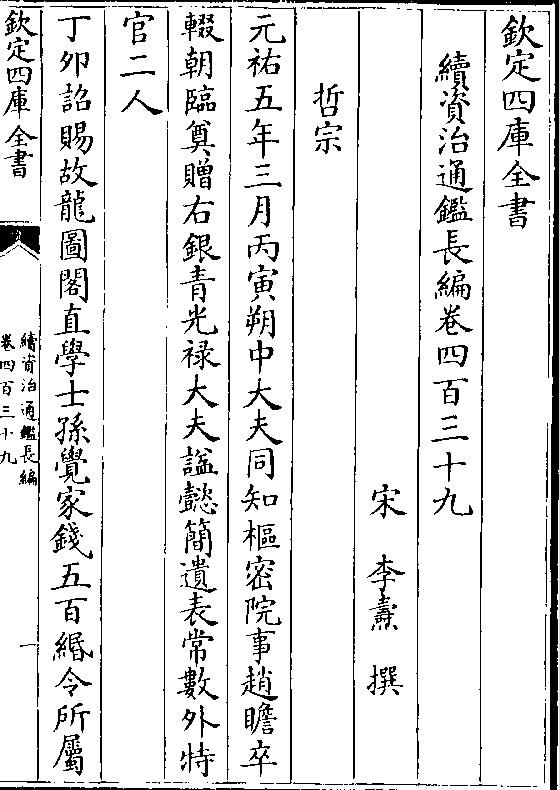 欽定四庫全書
續資治通鑑長編卷四百三十九
宋 李燾 撰
哲宗
元祐五年三月丙寅朔中大夫同知樞密院事趙瞻卒
輟朝臨奠贈右銀青光禄大夫諡懿簡遺表常數外特
官二人
丁卯詔賜故龍圖閣直學士孫覺家錢五百緡令所屬
欽定四庫全書
續資治通鑑長編
卷四百三十九
一